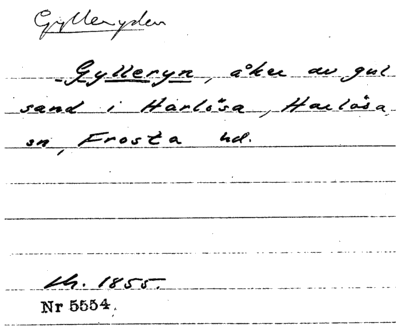 Gylleryden
Gylleryn, åker av gul
sand i Harlösa, Harlösa
sn, Frosta hd.
1855.
Nr 5554.